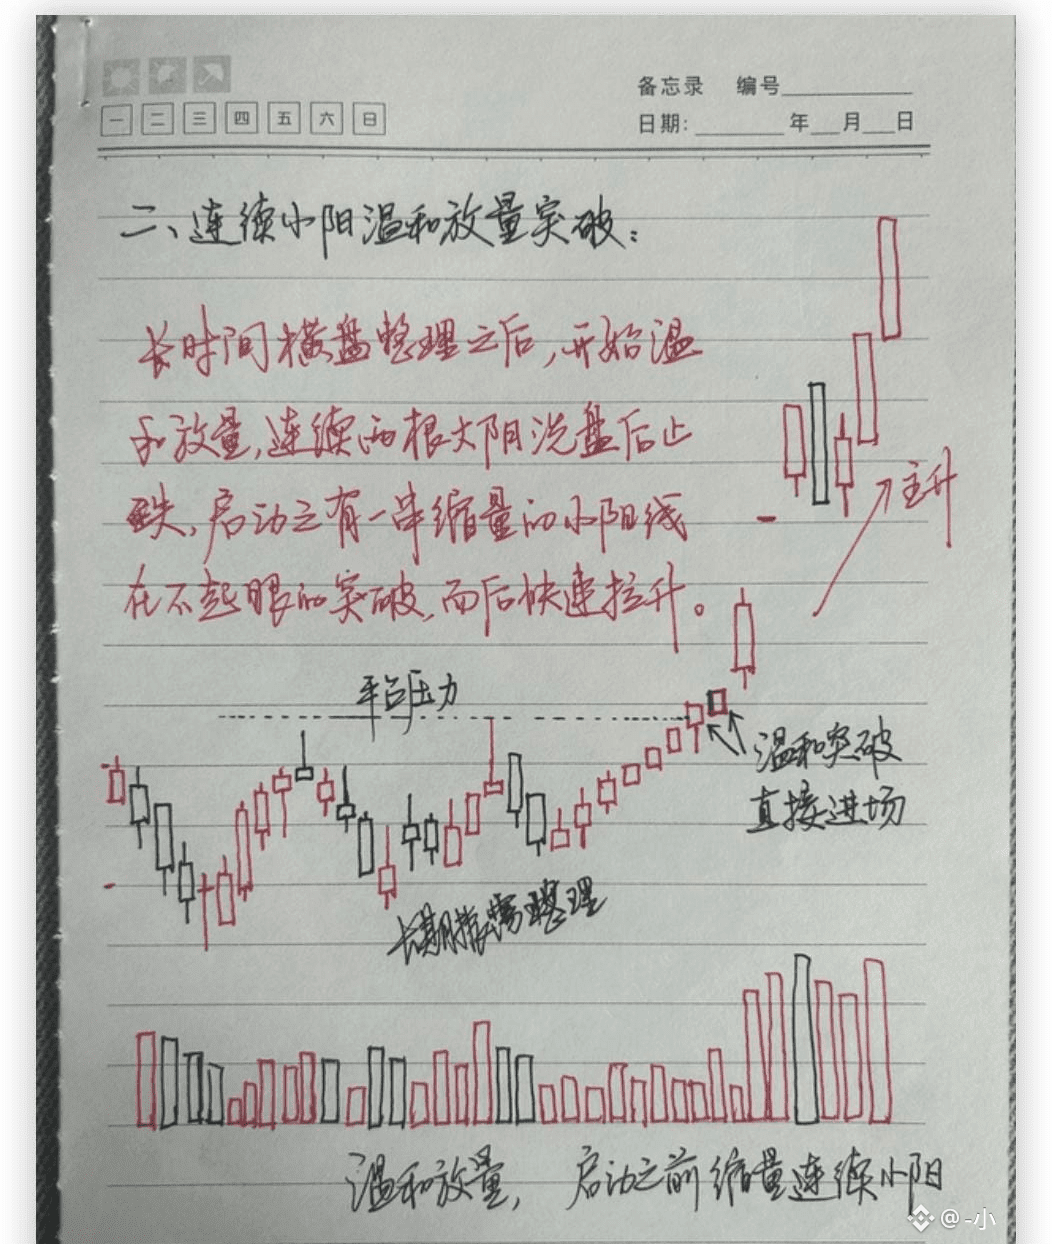 备忘录 编号
一 二 三 四 五 六 日
日期: 年 月 日
二、连续小阳温和放量突破:
长时间横盘整理之后,开始温
和放量,连续两根大阴洗盘后止
跌,启动之有一串缩量的小阳线
在不起眼的突破,而后快速拉升。
主升
平台压力
温和突破
直接进场
长期横盘整理
温和放量, 启动之前缩量连续小阳
@-小